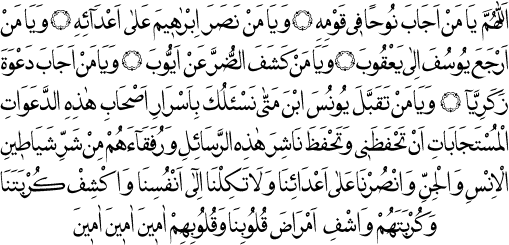 اَللّٰهُمَّ يَا مَنْ اَجَابَ نُوحًا فِى قَوْمِهِ ۞ وَيَا مَنْ نَصَرَ اِبْرٰهِيمَ عَلٰى اَعْدَائِهِ ۞ وَيَا مَنْ
اَرْجَعَ يُوسُفَ اِلٰى يَعْقُوبَ ۞ وَيَا مَنْ كَشَفَ الضُّرَّ عَنْ اَيُّوبَ ۞ وَيَا مَنْ اَجَابَ دَعْوَةَ
زَكَرِيَّا ۞ وَيَا مَنْ تَقَبَّلَ يُونُسَ ابْنَ مَتّٰى نَسْئَلُكَ بِاَسْرَارِ اَصْحَابِ هٰذِهِ الدَّعَوَاتِ
الْمُسْتَجَابَاتِ اَنْ تَحْفَظَنِى وَتَحْفَظَ نَاشِرَ هٰذِهِ الرَّسَائِلِ وَرُفَقَاءَهُمْ مِنْ شَرِّ شَيَاطِينِ
الْاِنْسِ وَالْجِنِّ وَانْصُرْنَا عَلٰى اَعْدَائِنَا وَلَا تَكِلْنَا اِلٰى اَنْفُسِنَا وَاكْشِفْ كُرْبَتَنَا
وَكُرْبَتَهُمْ وَاشْفِ اَمْرَاضَ قُلُوبِنَا وَقُلُوبِهِمْ اٰمِينَ اٰمِينَ اٰمِينَ